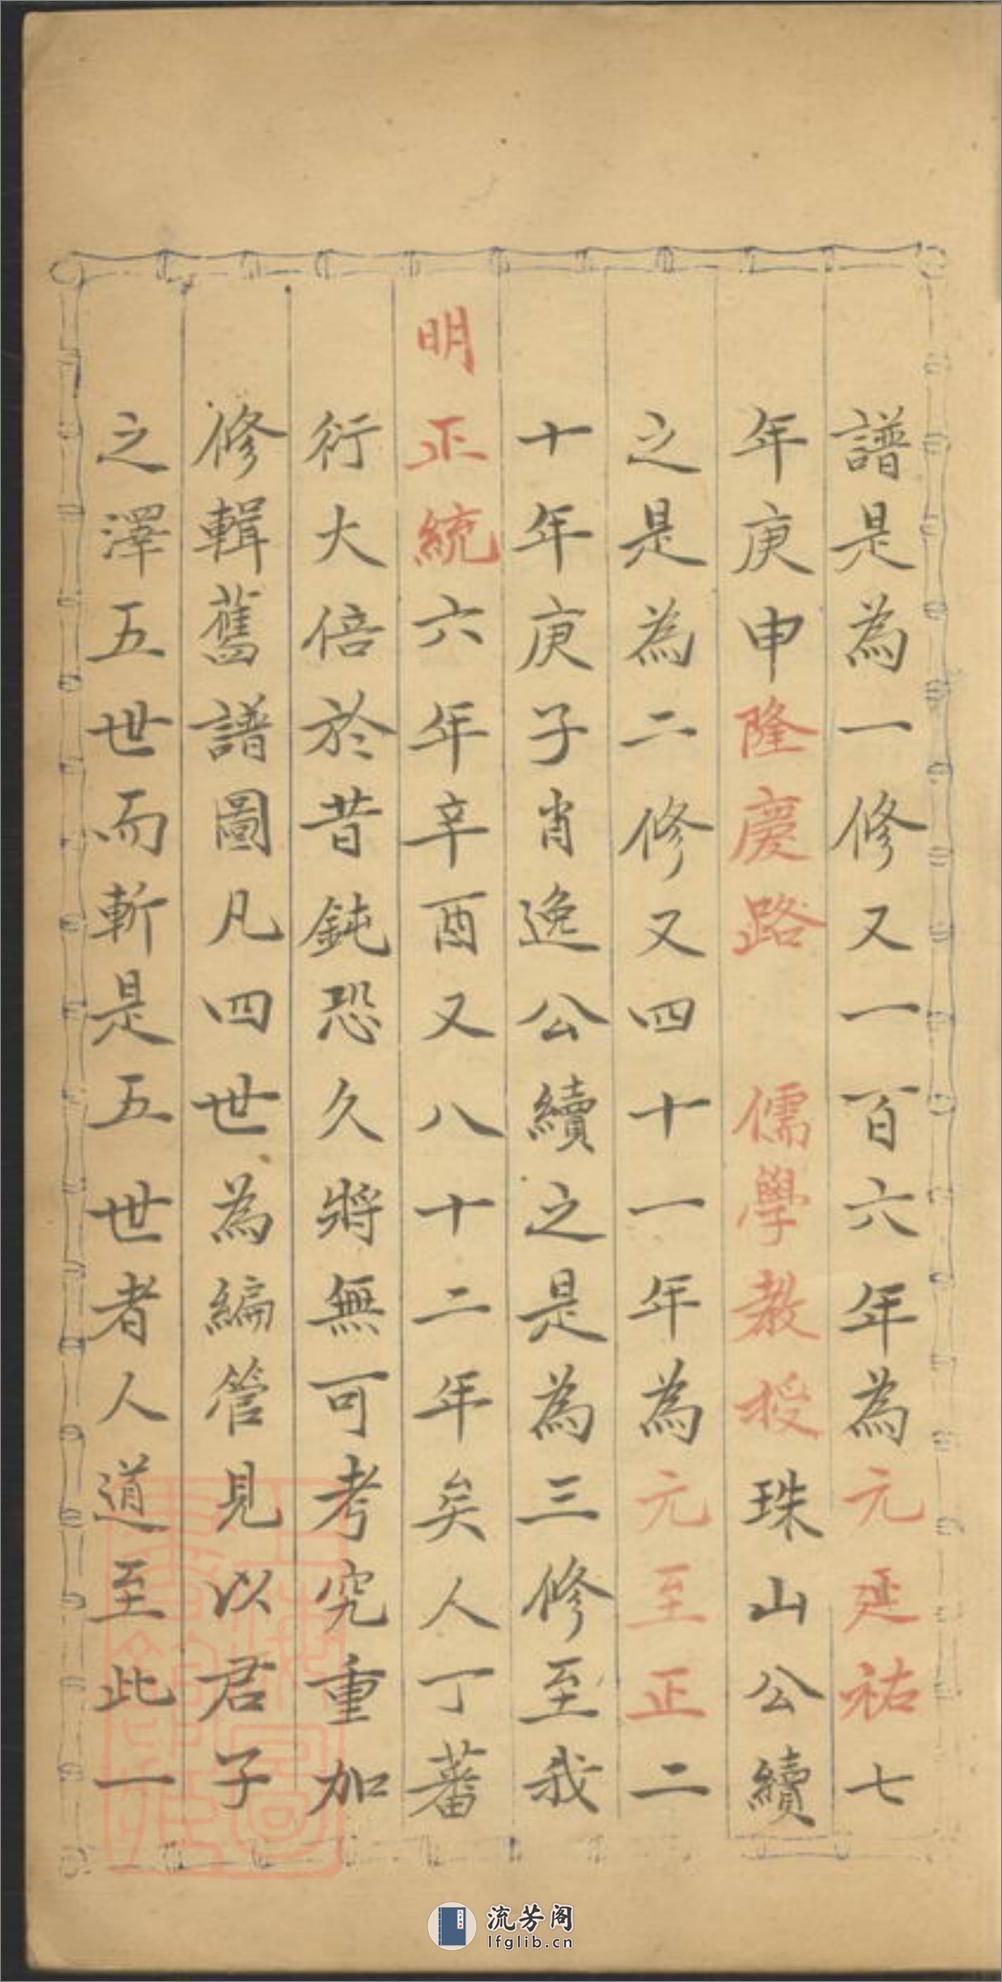 譜是為一修又一百六年為元延祐七
年庚申隆慶路　儒學教授珠山公續
之是為二修又四十一年為元至正二
十年庚子肖逸公續之是為三修至我
明正統六年辛酉又八十二年矣人丁蕃
衍大倍於昔鈍恐久將無可考究重加
修輯舊譜圖凡四世為編管見以君子
之澤五世而斬是五世者人道至此一
流芳阁
lfglib.cn